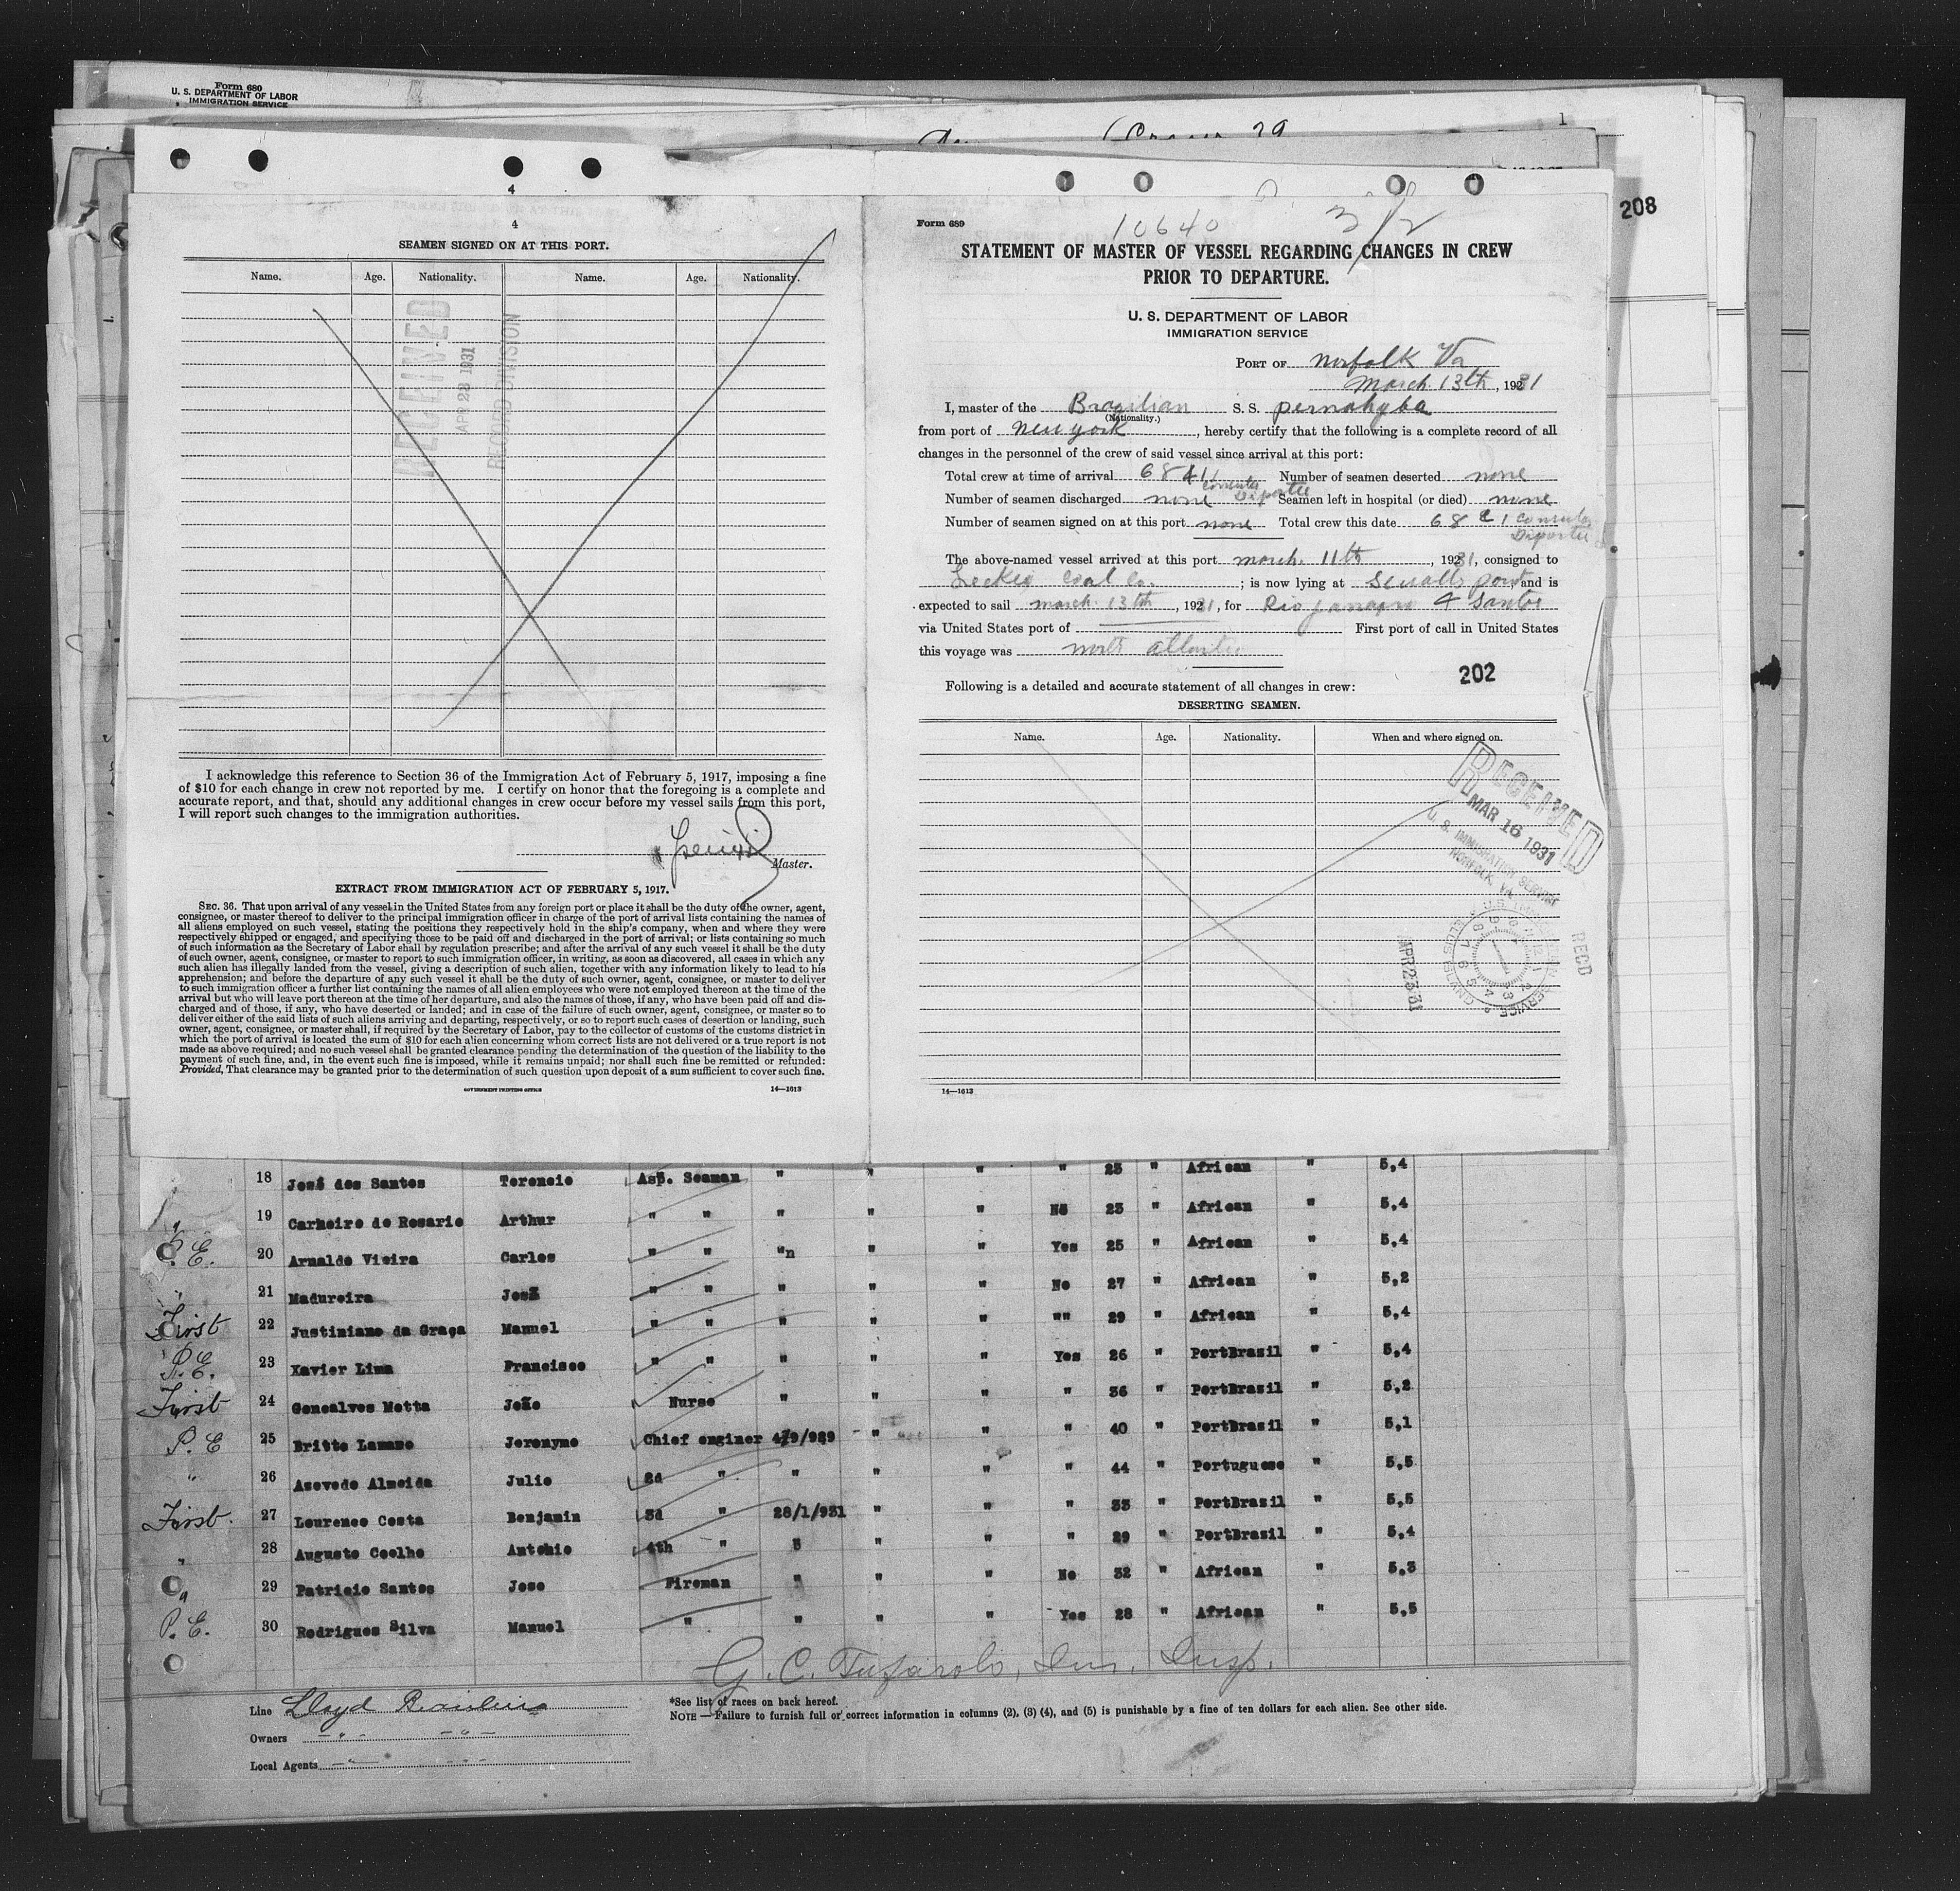 Form 680
U. S. DEPARTMENT OF LABOR
IMMIGRATION SERVICE
1
208
4
4
SEAMEN SIGNED ON AT THIS PORT.
Name. Age. Nationality. Name. Age. Nationality.
RECEIVED
APR 23 1931
RECORD DIVISION
I acknowledge this reference to Section 36 of the Immigration Act of February 5, 1917, imposing a fine
of $10 for each change in crew not reported by me. I certify on honor that the foregoing is a complete and
accurate report, and that, should any additional changes in crew occur before my vessel sails from this port,
I will report such changes to the immigration authorities.
Master.
EXTRACT FROM IMMIGRATION ACT OF FEBRUARY 5, 1917.
SEC. 36. That upon arrival of any vessel in the United States from any foreign port or place it shall be the duty of the owner, agent,
consignee, or master thereof to deliver to the principal immigration officer in charge of the port of arrival lists containing the names of
all aliens employed on such vessel, stating the positions they respectively hold in the ship's company, when and where they were
respectively shipped or engaged, and specifying those to be paid off and discharged in the port of arrival; or lists containing so much
of such information as the Secretary of Labor shall by regulation prescribe; and after the arrival of any such vessel it shall be the duty
of such owner, agent, consignee, or master to report to such immigration officer, in writing, as soon as discovered, all cases in which any
such alien has illegally landed from the vessel, giving a description of such alien, together with any information likely to lead to his
apprehension; and before the departure of any such vessel it shall be the duty of such owner, agent, consignee, or master to deliver
to such immigration officer a further list containing the names of all alien employees who were not employed thereon at the time of the
arrival but who will leave port thereon at the time of her departure, and also the names of those, if any, who have been paid off and dis-
charged and of those, if any, who have deserted or landed; and in case of the failure of such owner, agent, consignee, or master so to
deliver either of the said lists of such aliens arriving and departing, respectively, or so to report such cases of desertion or landing, such
owner, agent, consignee, or master shall, if required by the Secretary of Labor, pay to the collector of customs of the customs district in
which the port of arrival is located the sum of $10 for each alien concerning whom correct lists are not delivered or a true report is not
made as above required; and no such vessel shall be granted clearance pending the determination of the question of the liability to the
payment of such fine, and, in the event such fine is imposed, while it remains unpaid; nor shall such fine be remitted or refunded:
Provided, That clearance may be granted prior to the determination of such question upon deposit of a sum sufficient to cover such fine.
GOVERNMENT PRINTING OFFICE 14—1613
Form 689
10640 3/2
STATEMENT OF MASTER OF VESSEL REGARDING CHANGES IN CREW
PRIOR TO DEPARTURE.
U. S. DEPARTMENT OF LABOR
IMMIGRATION SERVICE
PORT OF Norfolk Va
March 13th, 1931
I, master of the Brazilian S. S. Pernahyba
(Nationality.)
from port of New york, hereby certify that the following is a complete record of all
changes in the personnel of the crew of said vessel since arrival at this port:
Total crew at time of arrival 68 & 1 Consular Deportee Number of seamen deserted none
Number of seamen discharged none Seamen left in hospital (or died) none
Number of seamen signed on at this port none Total crew this date 68 & 1 Consular Deportee
The above-named vessel arrived at this port march 11th, 1931, consigned to
Leckie Coal Co.; is now lying at Sewalls point and is
expected to sail march 13th, 1931, for Rio janairo & Santos
via United States port of First port of call in United States
this voyage was north atlantic
202
Following is a detailed and accurate statement of all changes in crew:
DESERTING SEAMEN.
Name. Age. Nationality. When and where signed on.
RECEIVED
MAR 16 1931
U. S. IMMIGRATION SERVICE
NORFOLK, VA.
APR 23 31
RECD
14—1613
18 José des Santos Terencio Asp. Seaman " " " " 23 " African " 5,4
19 Carneiro de Rosario Arthur " " " " " No 23 " African " 5,4
P. E. 20 Arnaldo Vieira Carlos " " "n " " Yes 25 " African " 5,4
" 21 Madureira José " " " " " No 27 " African " 5,2
First 22 Justiniano da Graça Manuel " " " " " "" 29 " African " 5,4
P. E. 23 Xavier Lima Francisco " " " " " Yes 26 " PortBrasil " 5,4
First 24 Goncalves Motta João Nurse " " " " 36 " PortBrasil " 5,2
P. E 25 Britto Lamano Jeronymo Chief enginer 4/9/929 " " " 40 " PortBrasil " 5,1
" 26 Azevedo Almeida Julio 2d " " " " " 44 " Portuguese " 5,5
First. 27 Lourenco Costa Benjamin 3d " 28/1/931 " " " 33 " PortBrasil " 5,5
" 28 Augusto Coelho Antonio 4th " " " " " 29 " PortBrasil " 5,4
" 29 Patricio Santos Jose Fireman " " " No 32 " African " 5,3
P. E. 30 Rodrigues Silva Manuel " " " " Yes 28 " African " 5,5
G. C. Tufarolo, Im. Insp.
Line Lloyd Brasileiro
Owners " "
Local Agents " "
*See list of races on back hereof.
NOTE—Failure to furnish full or correct information in columns (2), (3) (4), and (5) is punishable by a fine of ten dollars for each alien. See other side.